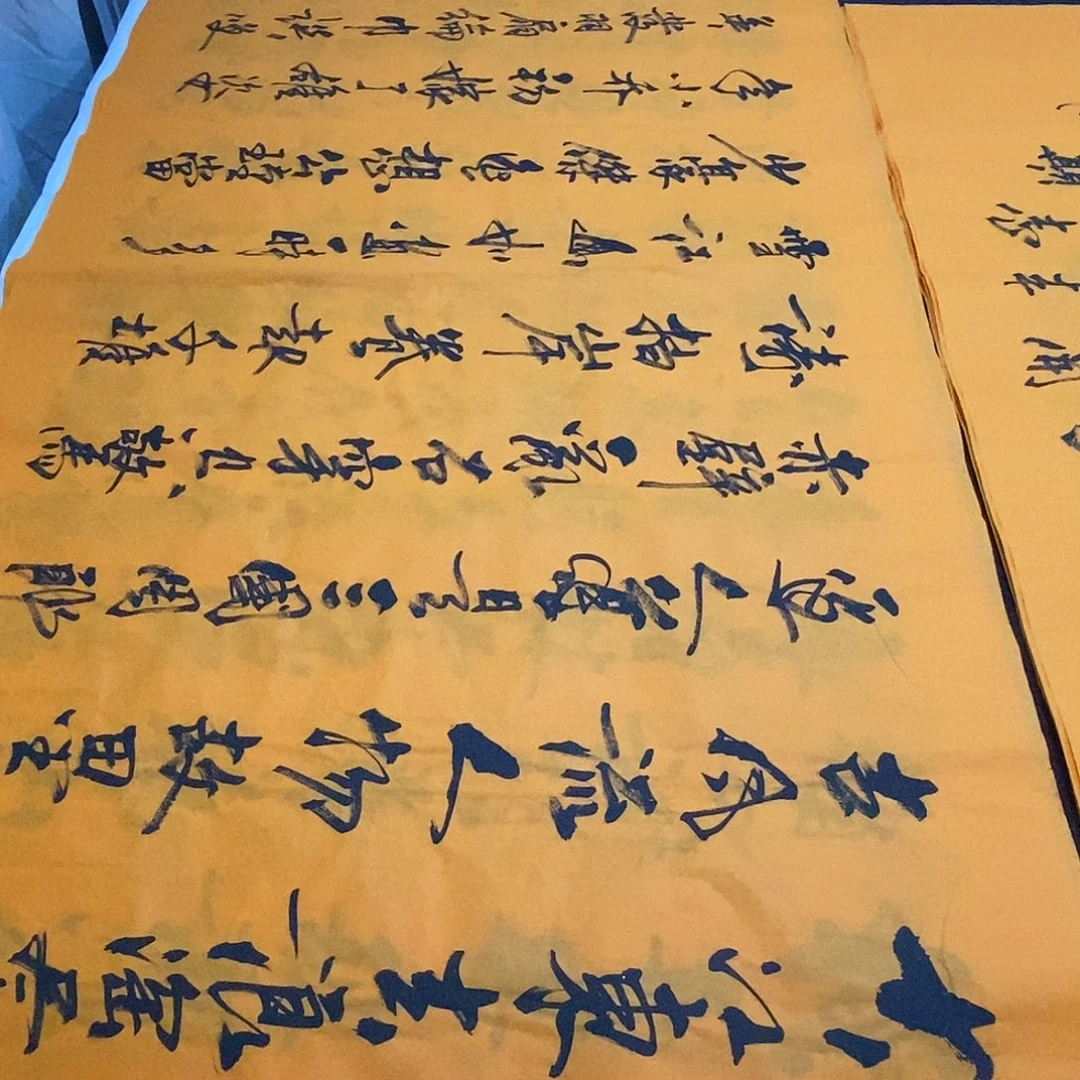 大江東去浪淘盡
古風流人物故壘
邊人道是三國周郎
赤壁亂石穿空驚
濤拍岸捲起千堆
雪江山如畫一時多
少豪傑遙想公瑾當
年小喬初嫁了雄姿
英發羽扇綸巾談笑